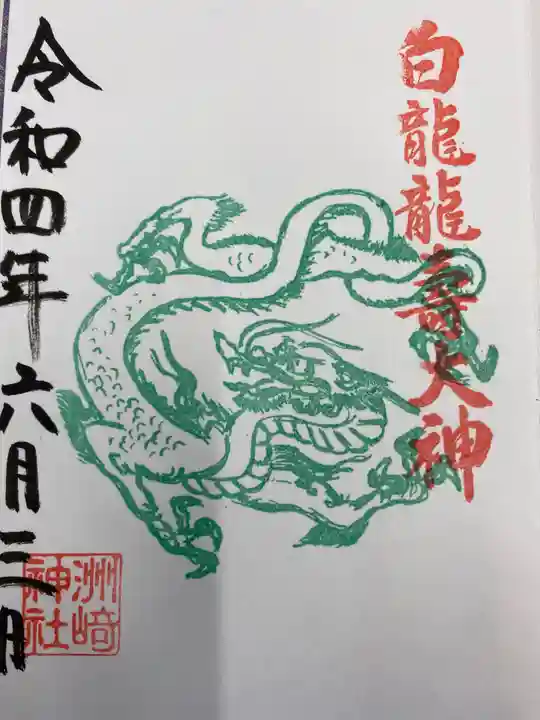 白龍龍壽大神
令和四年六月三日
洲崎神社